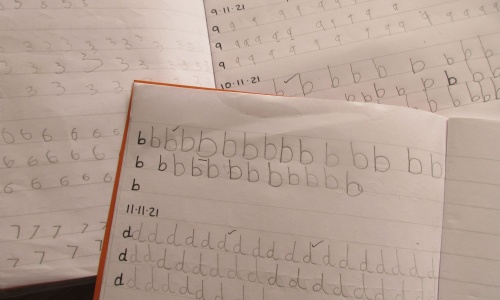 3 3 3 3 3
3 3 3 3 3 3
3 3 3 3 3
3 3 3 3
6 6 6 6 6 6
6 6 6 6 6
6 6 6 6 6 6
7 7 7 7 7 7
7 7 7 7
9.11.21
9 9 9 9 9 9 9 9 9
9 9 9 9 9 9 9 9 9 9
9 9 9 9 9
10.11.21
b b b b b b b
b b b b b b b b
b b b b b
b b b b b b b b b b b b b b b
b b b b b b b b b b b b b
b
11.11.21
d d d d d d d d d d d d d d d d d d
d d d d d d d d d d d d d d d d d
d d d d d d d d d d d d d d d d